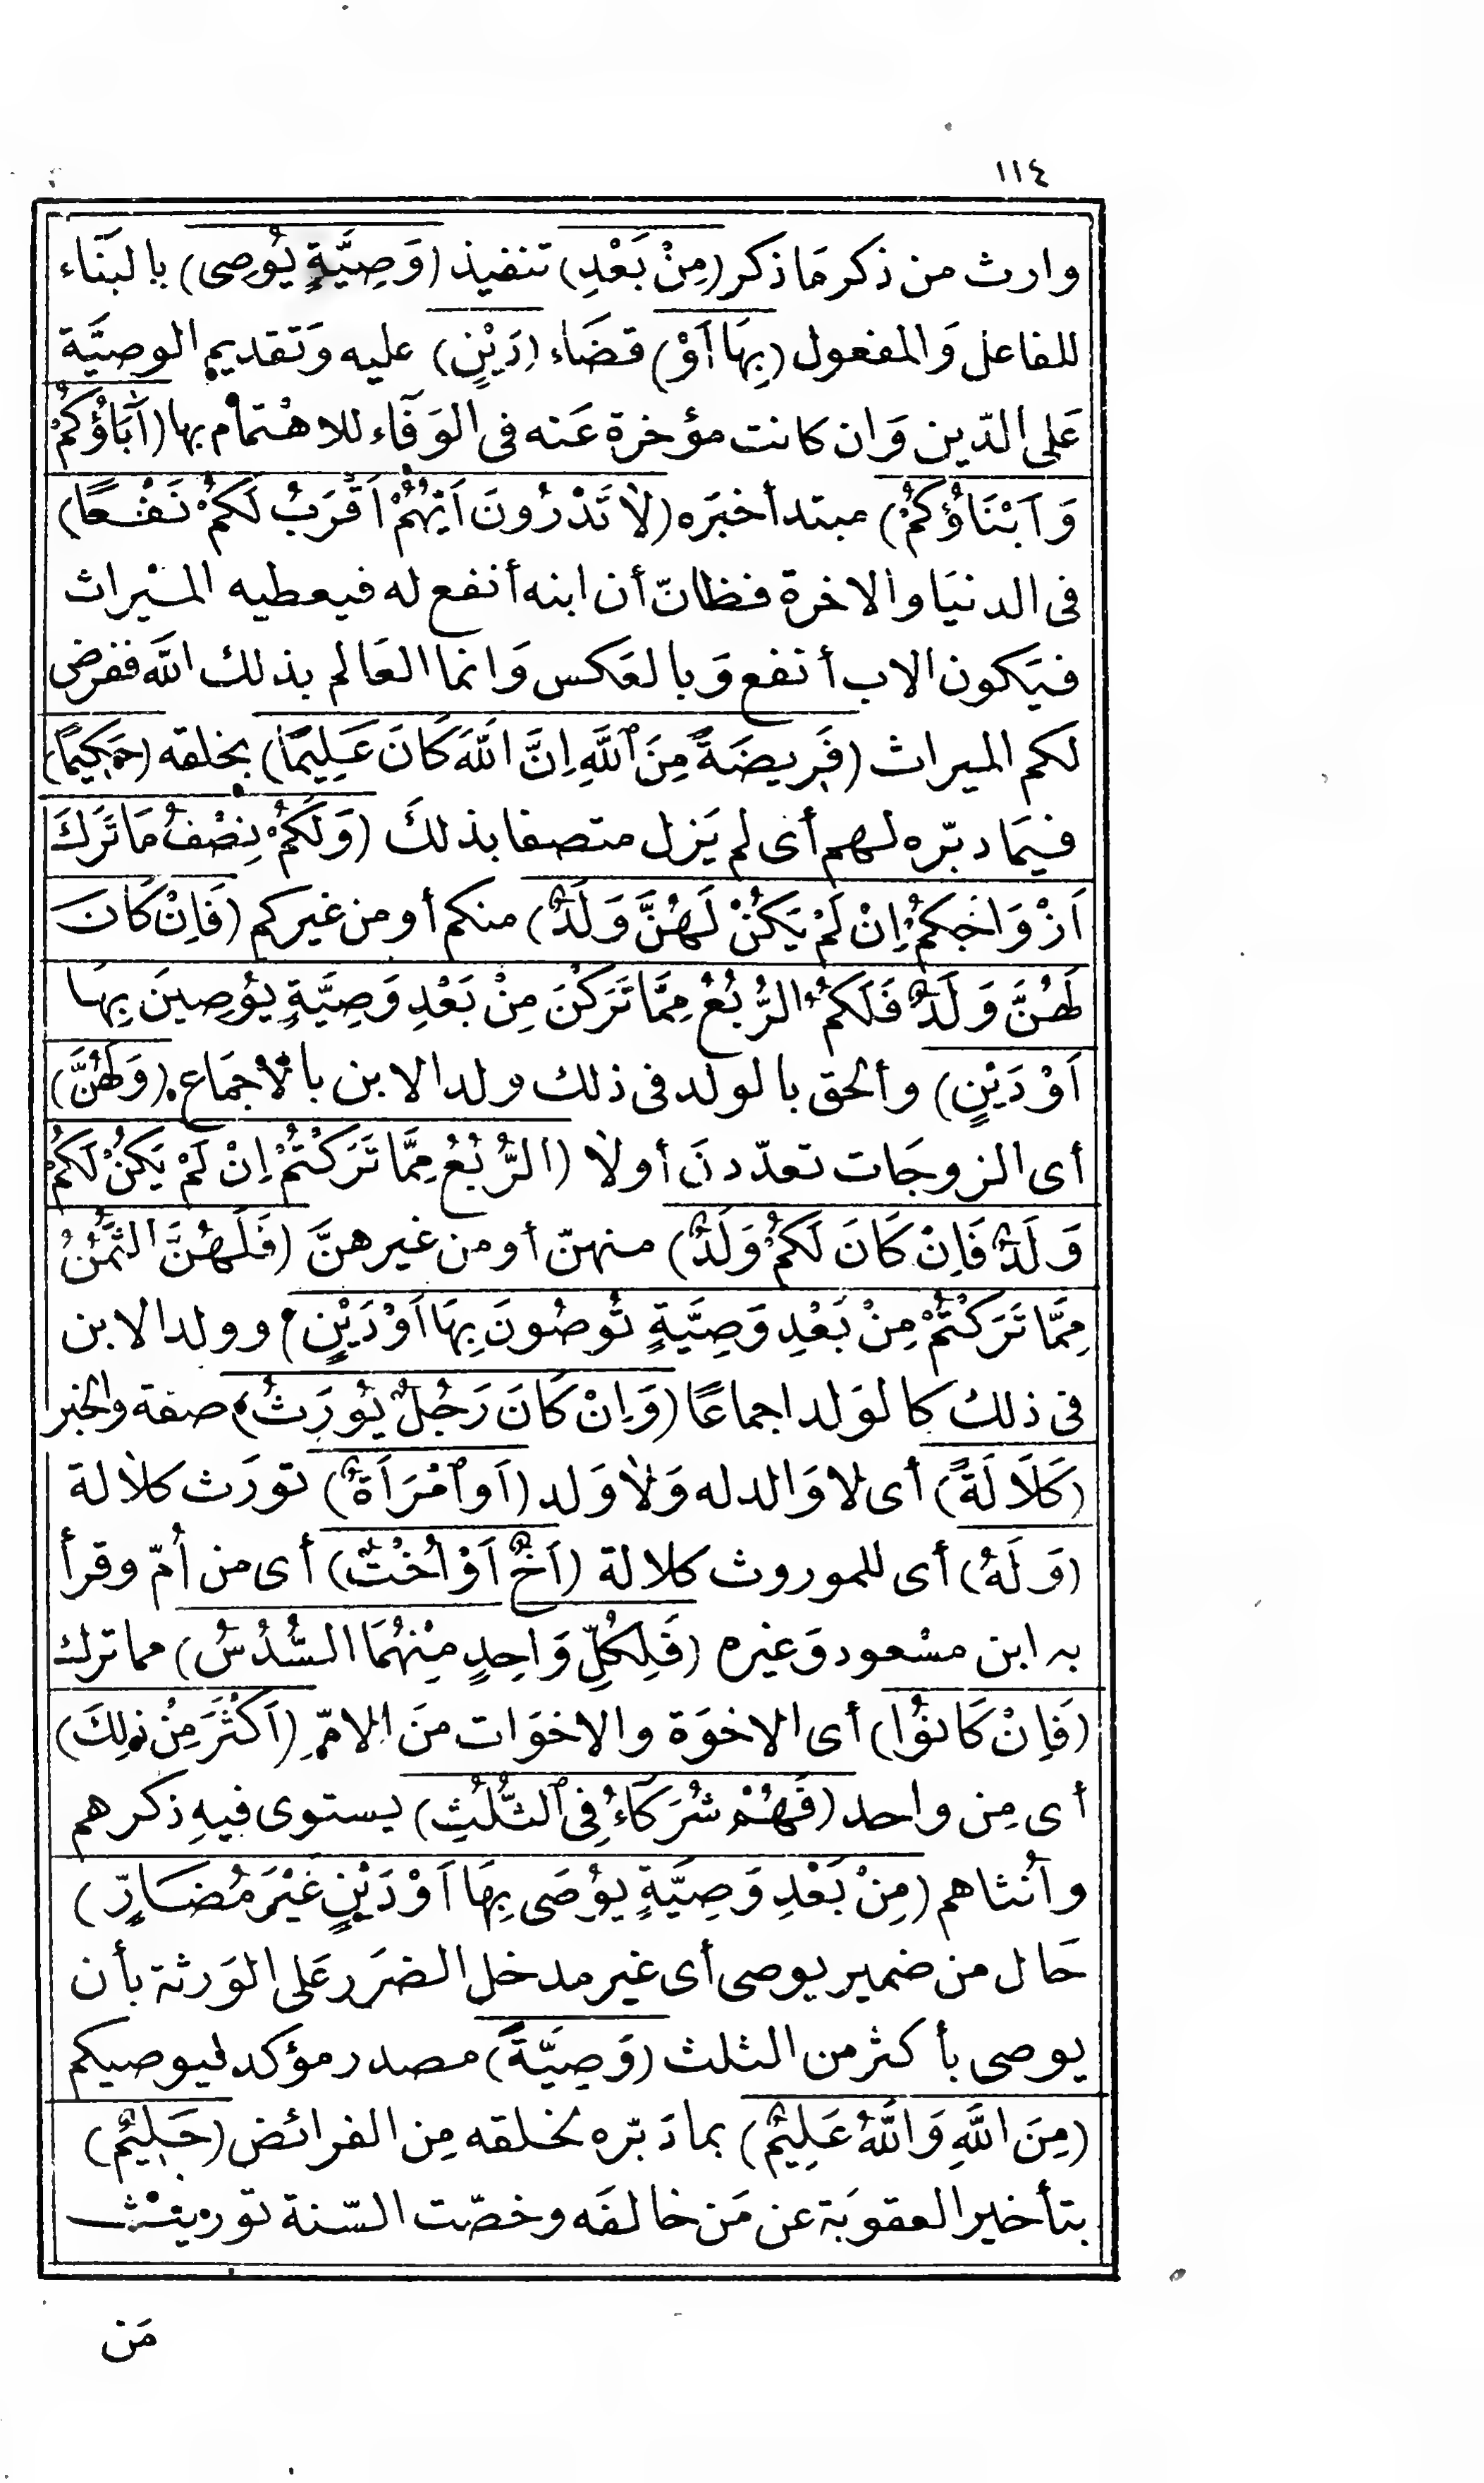 ١١٤
وارث من ذكر مَا ذكر (مِنْ بَعْدِ) تنفيذ (وَصِيَّةٍ يُوصِى) بالبنَاء
للفاعل وَالمفعول (بِهَا أَوْ) قضَاء (دَيْنٍ) عليه وَتقديم الوصيَّة
عَلى الدّين وَان كانت مؤخرة عَنه فى الوَفَاء للاهْتمام بها (آبَاؤُكُمْ
وَأَبْنَاؤُكُمْ) مبتدأ خبَره (لَا تَدْرُونَ أَيُّهُمْ أَقْرَبُ لَكُمْ نَفْعًا)
فى الدنيَا والاخرة فظانّ أن ابنه أنفع له فيعطيه الميْراث
فيَكون الاب أنفع وَبالعَكس وَانما العَالم بذلك الله ففرض
لكم الميراث (فَرِيضَةً مِنَ ٱللَّهِ إِنَّ اللَّهَ كَانَ عَلِيمًا) بخلقه (حَكِيمًا)
فيمَا دبّره لهم أى لم يَزل متصفا بذلكَ (وَلَكُمْ نِصْفُ مَا تَرَكَ
أَزْوَاجُكُمْ إِنْ لَمْ يَكُنْ لَهُنَّ وَلَدٌ) منكم أو من غيركم (فَإِنْ كَانَ
لَهُنَّ وَلَدٌ فَلَكُمُ الرُّبُعُ مِمَّا تَرَكْنَ مِنْ بَعْدِ وَصِيَّةٍ يُوصِينَ بِهَا
أَوْ دَيْنٍ) وألحق بالولد فى ذلك ولد الابن بالاجمَاع (وَلَهُنَّ)
أى الزوجَات تعدّدنَ أولا (الرُّبُعُ مِمَّا تَرَكْتُمْ إِنْ لَمْ يَكُنْ لَكُمْ
وَلَدٌ فَإِنْ كَانَ لَكُمْ وَلَدٌ) منهنّ أو من غيرهنَّ (فَلَهُنَّ الثُّمُنُ
مِمَّا تَرَكْتُمْ مِنْ بَعْدِ وَصِيَّةٍ تُوصُونَ بِهَا أَوْ دَيْنٍ) وولد الابن
فى ذلك كالوَلد اجماعًا (وَإِنْ كَانَ رَجُلٌ يُورَثُ) صفة والخبر
(كَلَالَةً) أى لا وَالد له وَلا وَلد (أَوِ ٱمْرَأَةٌ) تورَث كلالة
(وَلَهُ) أى للموروث كلالة (أَخٌ أَوْ أُخْتٌ) أى من أُمّ وقرأ
به ابن مسْعود وَغيره (فَلِكُلِّ وَاحِدٍ مِنْهُمَا السُّدُسُ) مما ترك
(فَإِنْ كَانُوا) أى الاخوَة والاخوَات منَ الامّ (أَكْثَرَ مِنْ ذٰلِكَ)
أى مِن واحد (فَهُمْ شُرَكَاءُ فِى ٱلثُّلُثِ) يستوى فيهِ ذكرهم
وأُنثاهم (مِنْ بَعْدِ وَصِيَّةٍ يُوصَى بِهَا أَوْ دَيْنٍ غَيْرَ مُضَارٍّ)
حَال من ضمير يوصى أى غير مدخل الضرَر عَلى الوَرثة بأن
يوصى بأكثر من الثلث (وَصِيَّةً) مصدر مؤكد ليوصيكم
(مِنَ اللَّهِ وَاللَّهُ عَلِيمٌ) بما دَبّره لخلقه مِن الفرائض (حَلِيمٌ)
بتأخير العقوبَة عن مَن خالفَه وخصّت السّنة توريْث
مَن